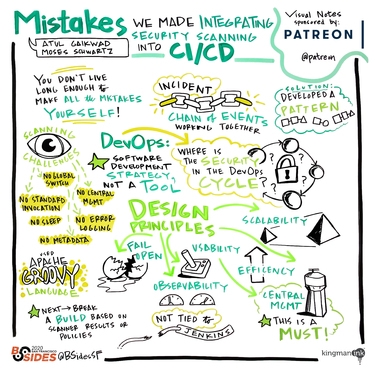 Mistakes WE MADE INTEGRATING
SECURITY SCANNING
INTO CI/CD
ATUL GAIKWAD
MOSES SCHWARTZ
Visual Notes
sponsored by:
PATREON
@patreon
YOU DON'T LIVE
LONG ENOUGH to
MAKE ALL the MISTAKES
YOURSELF!
INCIDENT
CHAIN of EVENTS
WORKING TOGETHER
SOLUTION:
DEVELOPED A
PATTERN
SCANNING
CHALLENGES
NO GLOBAL
SWITCH
NO STANDARD
INVOCATION
NO CENTRAL
MGMT
NO SLEEP
NO ERROR
LOGGING
NO METADATA
DevOps:
SOFTWARE
DEVELOPMENT
STRATEGY,
NOT A TOOL
WHERE IS
THE SECURITY
IN THE DevOps
CYCLE?
? ? ? ?
DESIGN
PRINCIPLES
SCALABILITY
FAIL
OPEN
USABILITY
EFFICENCY
OBSERVABILITY
CENTRAL
MGMT
THIS IS A
MUST!
NOT TIED to
JENKINS
USED
APACHE
GROOVY
LANGUAGE
NEXT→BREAK
A BUILD BASED ON
SCANNER RESULTS OR
POLICIES
BSIDES
2020
SAN FRANCISCO
@BSidesSF
kingmanink